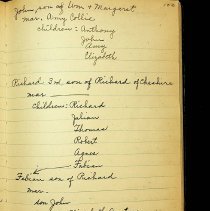 John, son of Wm & Margaret
mar. Amy Collie
children: Anthony
John
Amy
Elizabeth
Richard 3rd son of Richard of Cheshire
mar
Children: Richard
Julian
Thomas
Robert
Agnes
Fabian
Fabian son of Richard
mar.
son John